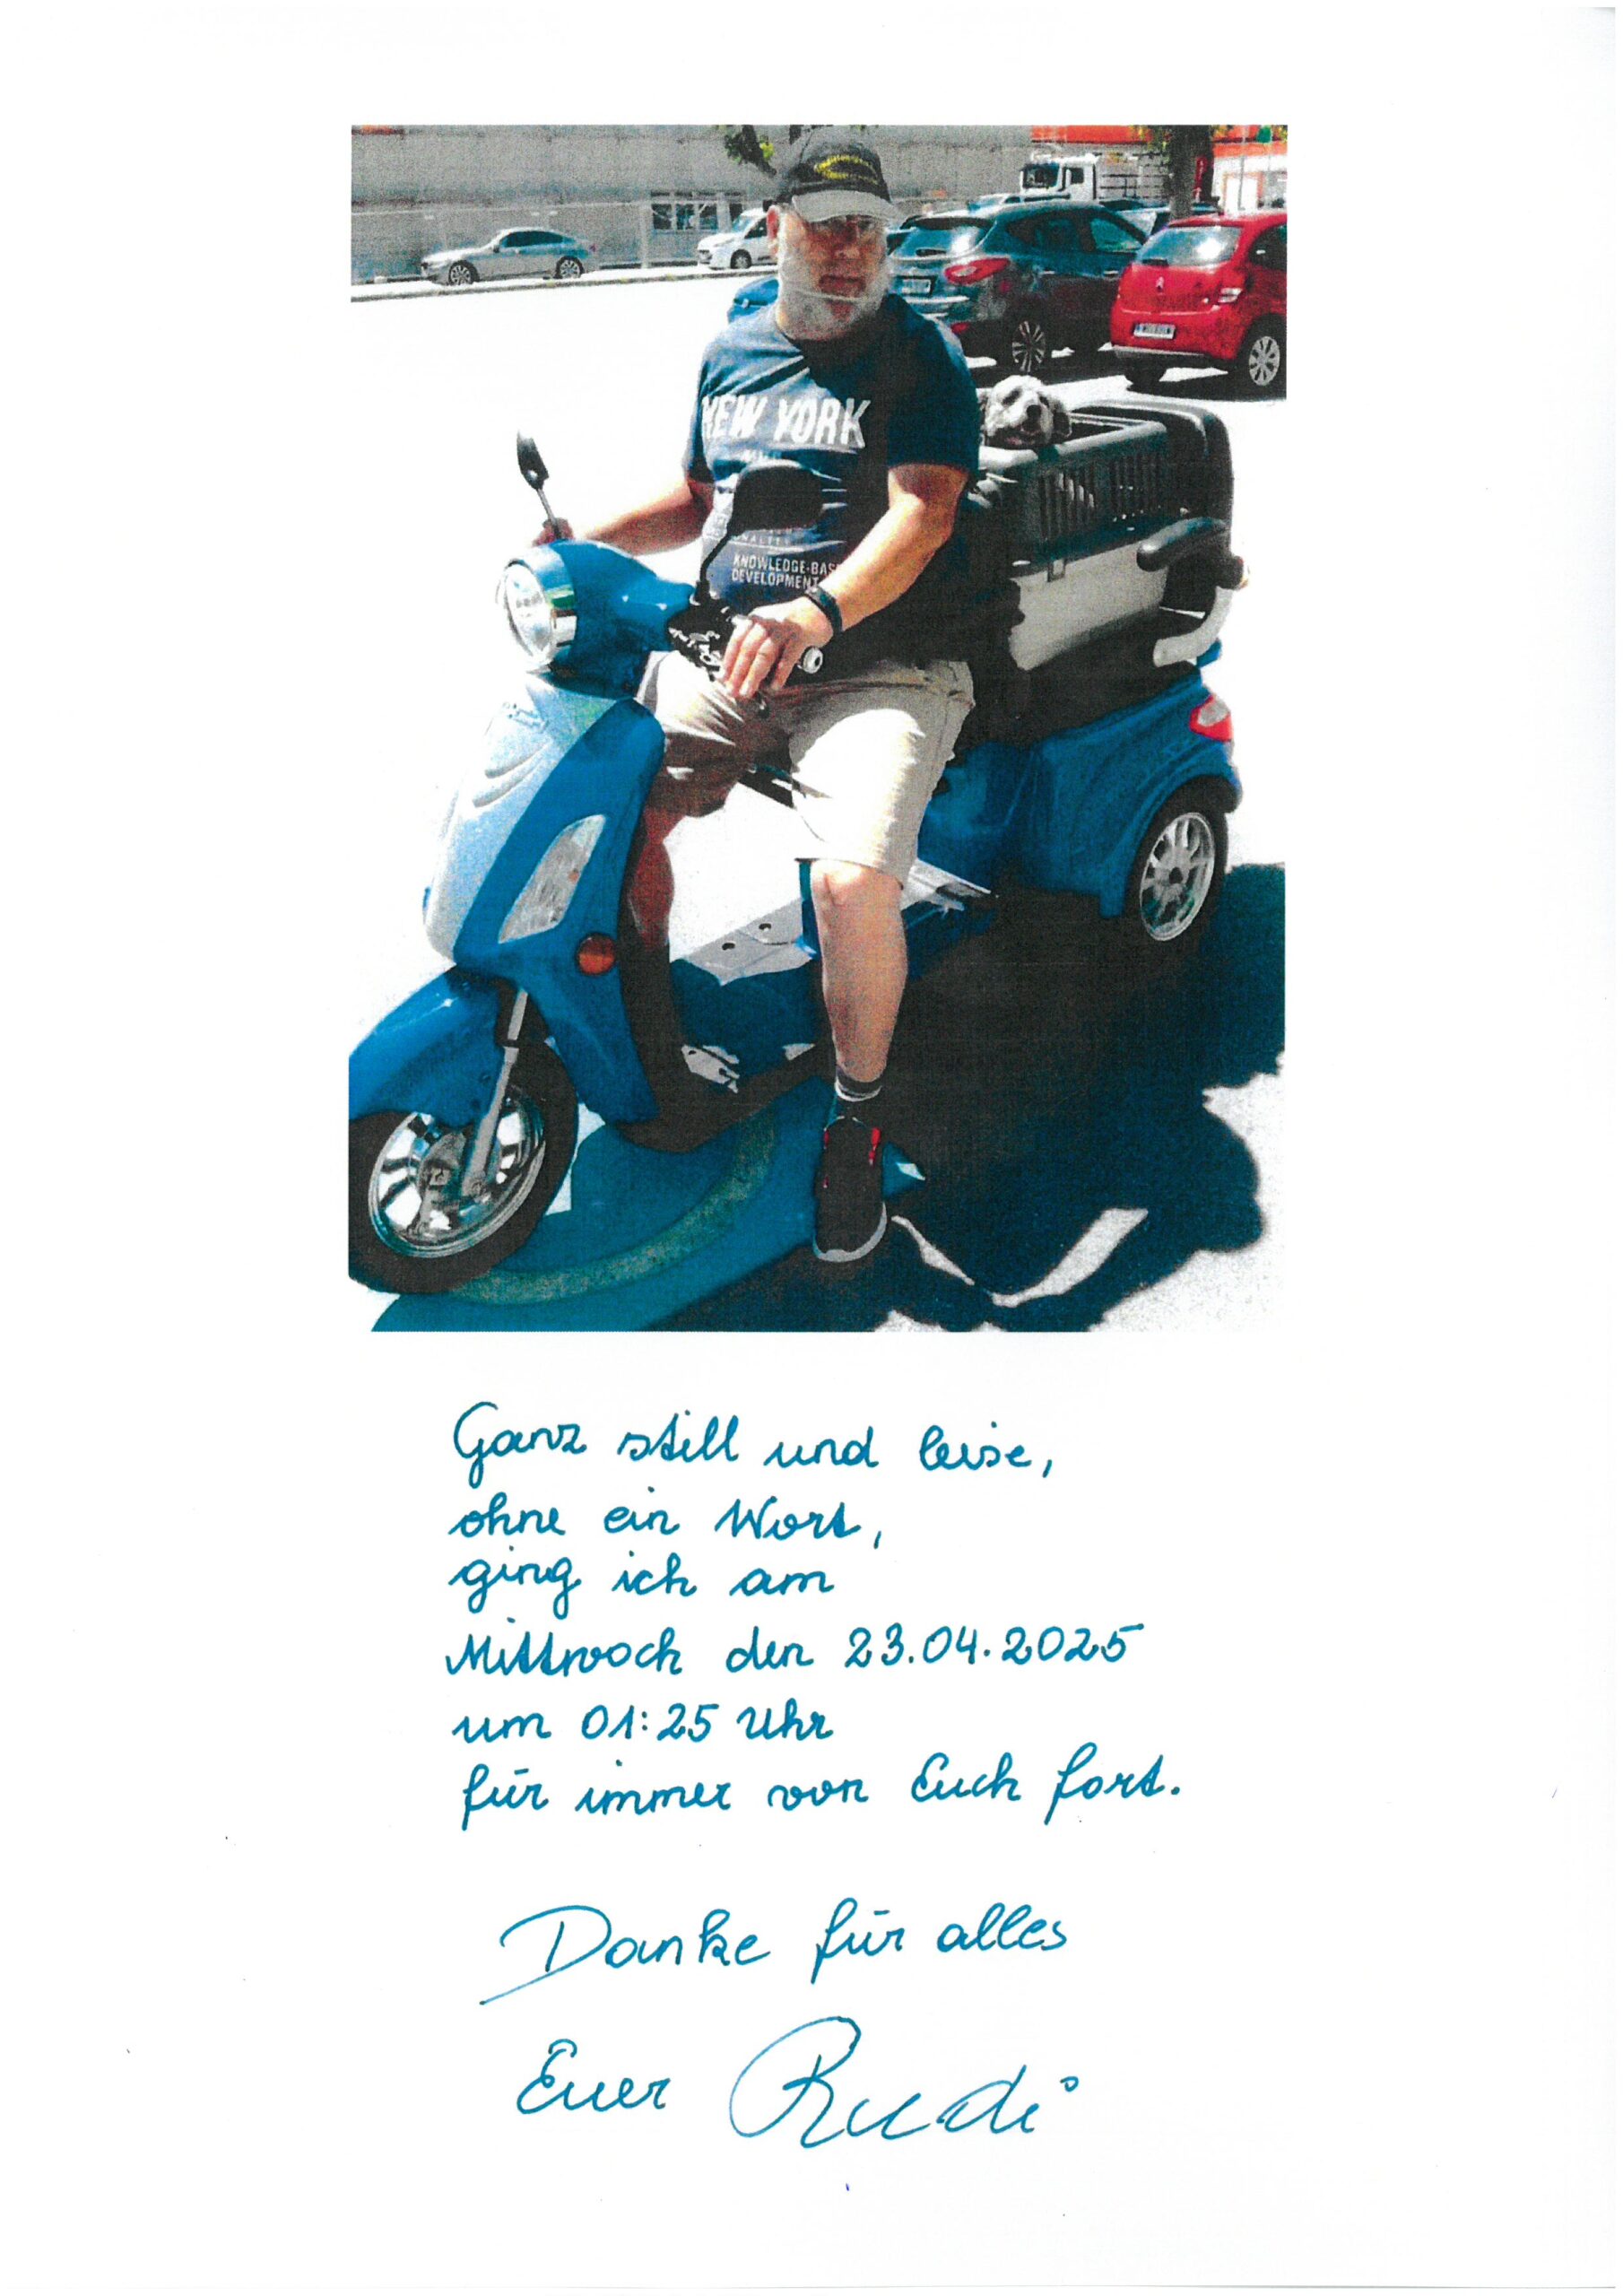 NEW YORK
KNOWLEDGE-BAS
DEVELOPMENT
Ganz still und leise,
ohne ein Wort,
ging ich am
Mittwoch den 23.04.2025
um 01:25 Uhr
für immer von Euch fort.
Danke für alles
Euer Rudi